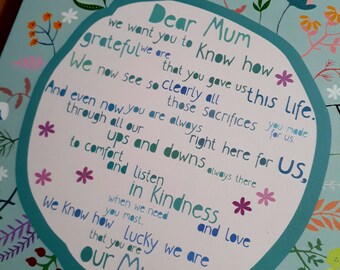 Dear Mum
we want you to know how
grateful we are that you gave us this life.
We now see so clearly all those sacrifices you made for us.
And even now you are always right here for us,
through all our ups and downs always there
to comfort and listen
in kindness and love
when we need you most.
We know how lucky we are
that you are
our M